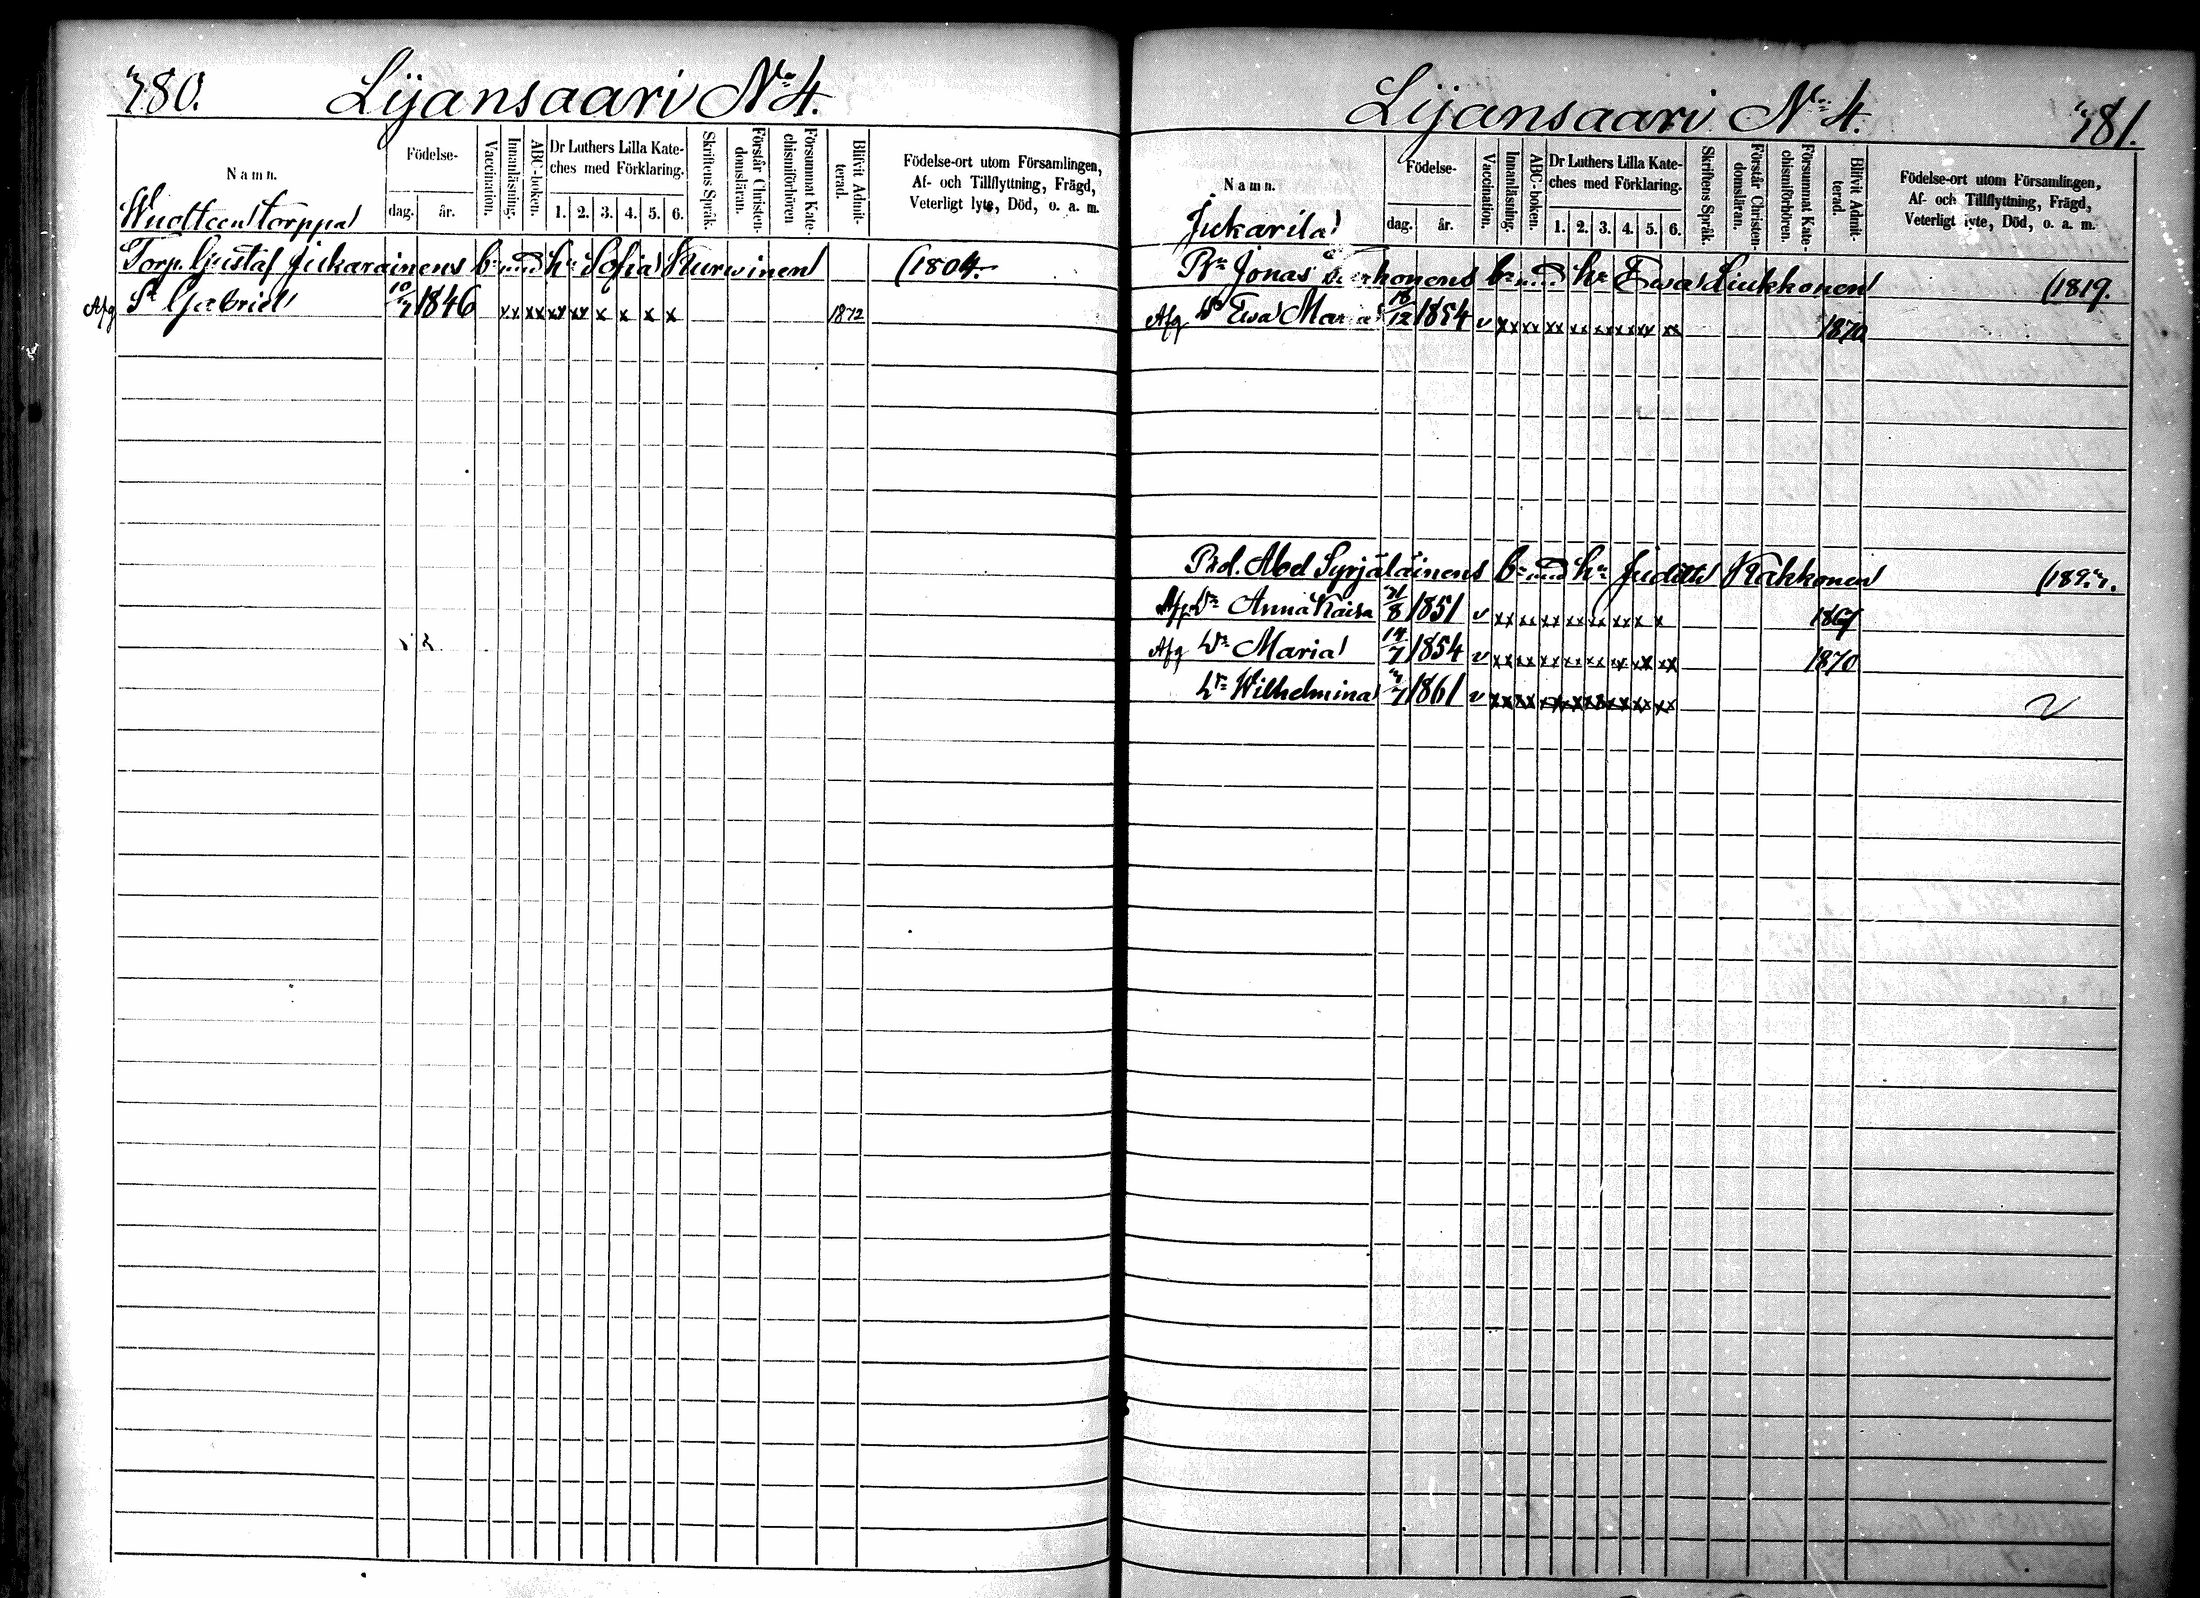 380.
Lijansaari No 4.
Namn.
Födelse-
dag.
år.
Vaccination.
Innanläsning.
ABC-boken.
Dr Luthers Lilla Kate-
ches med Förklaring.
1. 2. 3. 4. 5. 6.
Skriftens Språk.
Förstår Christen-
domsläran.
Försummat Kate-
chismiförhören
Blifvit Admit-
terad.
Födelse-ort utom Församlingen,
Af- och Tillflyttning, Frägd,
Veterligt lyte, Död, o. a. m.
Wuotteen torppa
Torp. Gustaf Jukarainens b: med h: Sofia Kurwinen (1804.
Afg Sn Gabriel 10/7 1846 xx xx xx xx x x x x 1872
Lijansaari No 4.
381.
Namn.
Födelse-
dag.
år.
Vaccination.
Innanläsning.
ABC-boken.
Dr Luthers Lilla Kate-
ches med Förklaring.
1. 2. 3. 4. 5. 6.
Skriftens Språk.
Förstår Christen-
domsläran.
Försummat Kate-
chismiförhören.
Blifvit Admit-
terad.
Födelse-ort utom Församlingen,
Af- och Tillflyttning, Frägd,
Veterligt lyte, Död, o. a. m.
Jukarila
Bn Jonas b: h: Ewa Liukkonen (1819.
Afg Dr Ewa Maria 18/12 1854 v xx xx xx xx xx xx xx xx 1870
Abel Syrjäläinens b: med h: Judith Kakkonen
Afg Dr Anna Kaisa 21/8 1851 v xx xx xx xx xx xx x x 1867
Afg Dr Maria 14/7 1854 v xx xx xx xx xx xx xx xx 1870
Dr Wilhelmina 1861 v xx xx xx xx xx xx xx xx